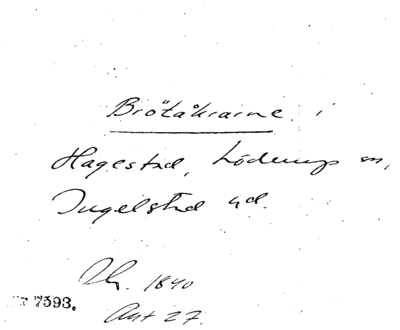 Brötåkrarne i
Hagestad, Löderup sn,
Ingelstad hd.
1840
7593.
Ant 27.